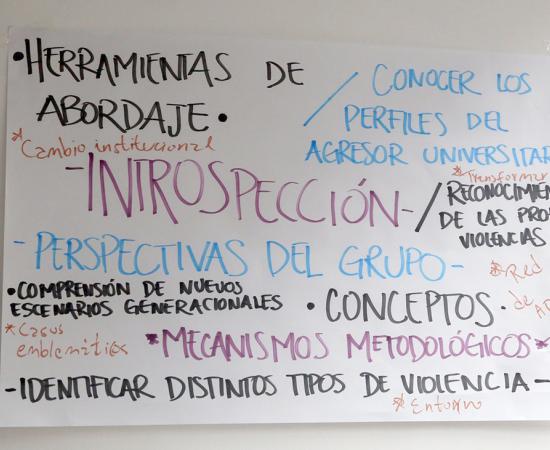 •HERRAMIENTAS DE
ABORDAJE•
/ CONOCER LOS
PERFILES DEL
AGRESOR UNIVERSITAR
*Cambio institucional
*Transformar
-INTROSPECCIÓN-
/RECONOCIMIEN
DE LAS PROP
VIOLENCIAS
-PERSPECTIVAS DEL GRUPO-
*Red
de
•COMPRENSIÓN DE NUEVOS
ESCENARIOS GENERACIONALES
•CONCEPTOS•
*Casos
emblemáticos
*MECANISMOS METODOLÓGICOS*
-IDENTIFICAR DISTINTOS TIPOS DE VIOLENCIA-
*Entorno